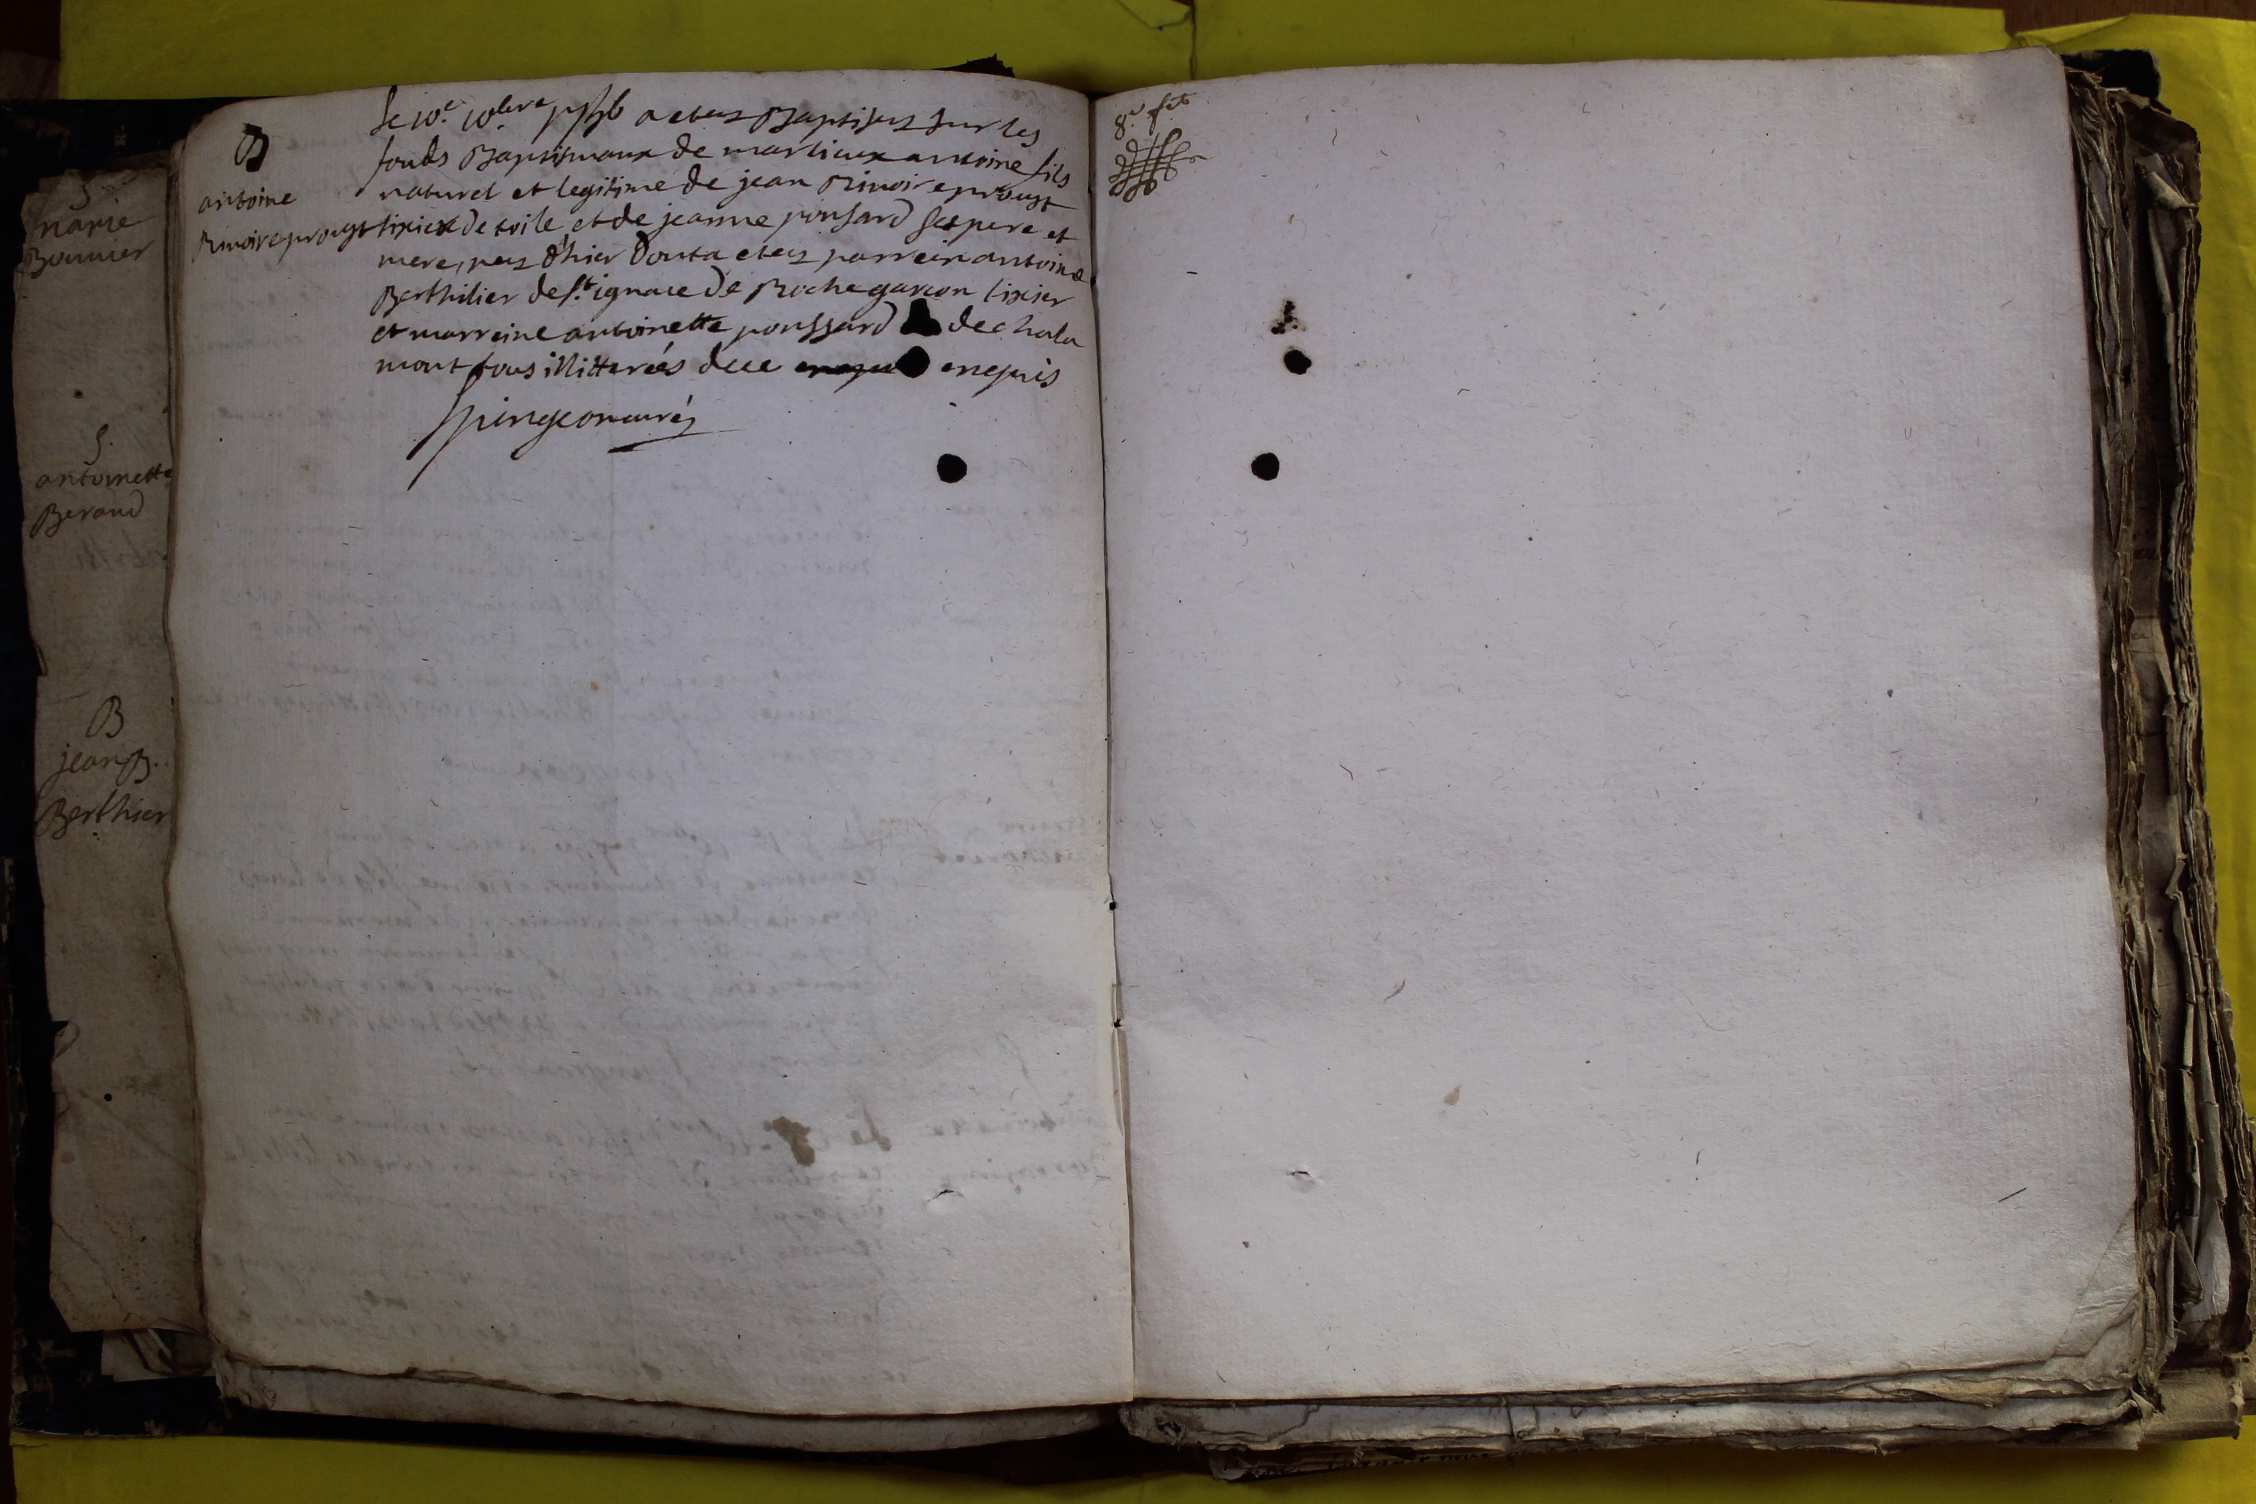 S
marie
Bonnier
S.
antoinette
Beraud
B
jean B.
Berthier
B
antoine
Rivoire prougt
Le 10.e 10.bre a etez Baptisez sur les
fonds Baptismaux de marlieux antoine fils
naturel et legitime de jean Rivoire prougt
tixier de toile et de jeanne ponsard ses pere et
mere, nez d'hier dont a etez parrein antoine
Berthilier de st. ignace de Roche garcon tixier
et marreine antoinette ponssard de chala
mont tous illitterés de ce enquis
pingeon curé
8.e f.et